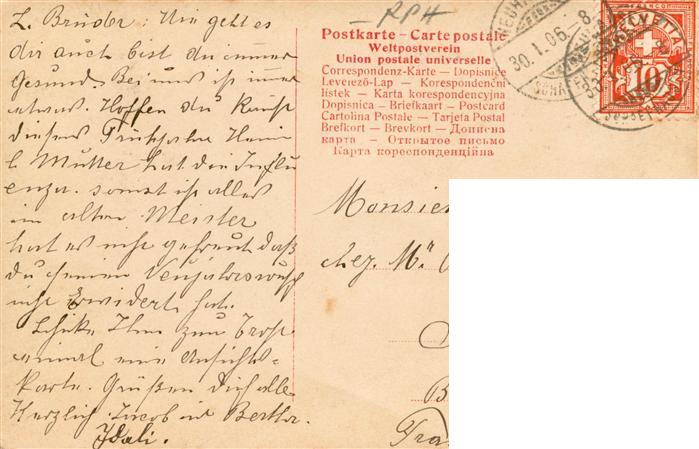 L. Brüder: Wie geht es
dir auch bist du immer
gesund. Bei uns ist immer
etwas. Hoffen du kannst
diesen Frühjahr Heim
l. Mutter hat die Influ
enza. sonst ist alles
im alten Meister
hat es nicht gefreut daß
du seinen Neujahrswusch
nicht Erwidert hat.
Schike Ihm zum Trost
einmal eine Ansichts-
karte. Grüßen dich alle
Herzlich Jacob und Bertha.
Idali.
RPH
Postkarte – Carte postale
Weltpostverein
Union postale universelle
Correspondenz-Karte – Dopisnice
Levelező-Lap – Korespondenční
lístek – Karta korespondencyjna
Dopisnica – Briefkaart – Postcard
Cartolina Postale – Tarjeta Postal
Brefkort – Brevkort – Дописна
карта – Открытое письмо
Карта кореспонденційна
30.1.06. 8
HELVETIA
10
Monsie
chez Mr
B
Fra